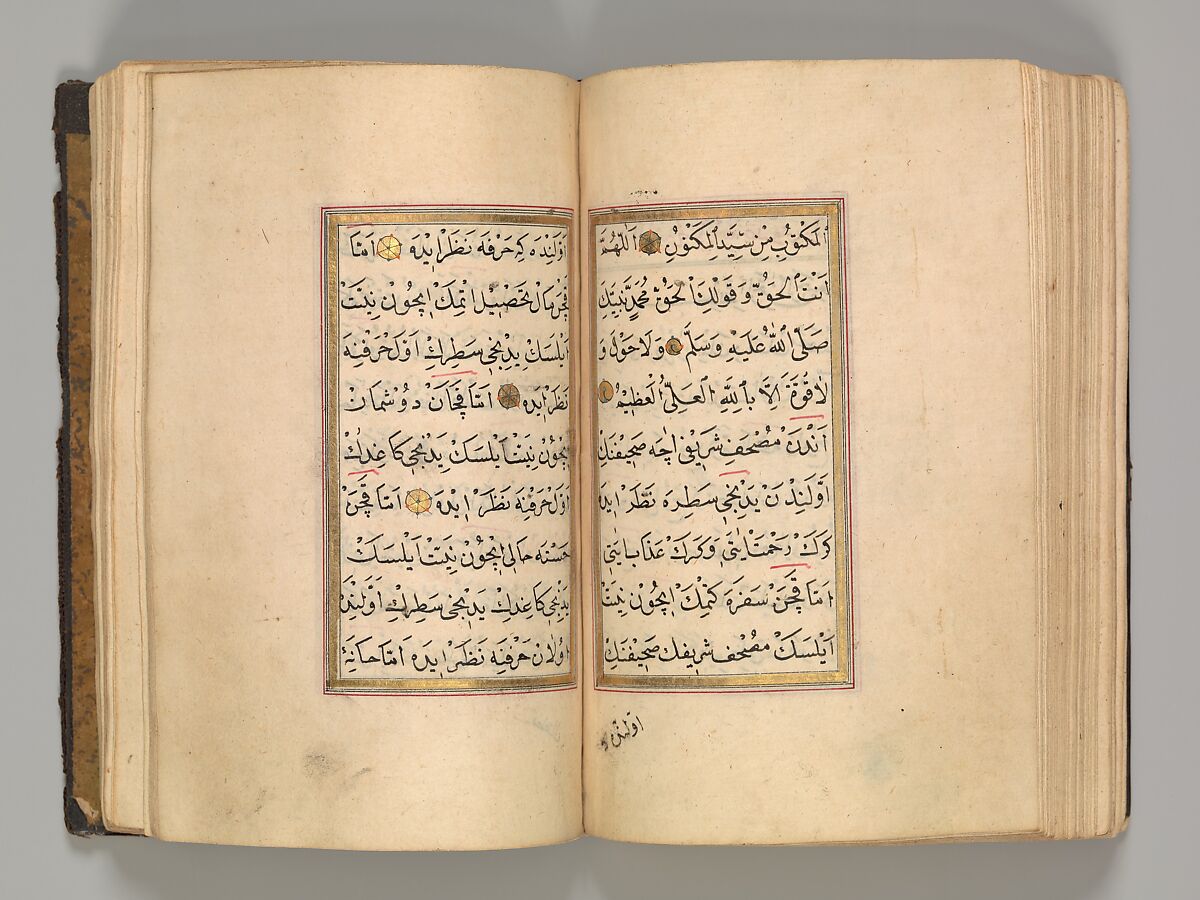 المكتوب من سر المكنون اللهم
انت الحق وقولك الحق محمد نبيك
صلى الله عليه وسلم ولا حول و
لا قوة الا بالله العلي العظيم
اندن مصحف شريفى اچه صحيفنك
اولندن يدنجى سطره نظر ايده
كرك رحمت ايتى وكرك عذاب ايتى
اما قچن سفره كتمك ايچون نيت
ايلسك مصحف شريفك صحيفنك
اولنده
اولنده كه حرفه نظر ايده اما
قچن مال تحصيل اتمك ايچون نيت
ايلسك يدنجى سطرك اول حرفنه
نظر ايده اما قچان دوشمان
ايچون نيت ايلسك يدنجى كاغدك
اول حرفنه نظر ايده اما قچن
خسته حالى ايچون نيت ايلسك
يدنجى كاغدك يدنجى سطرك اولنده
اولان حرفنه نظر ايده اما